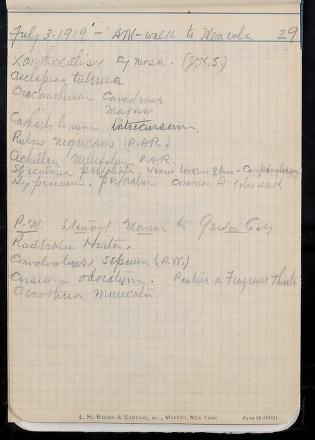 July 3. 1919 - AM - walk to Mineola 29
Xanthoxalis cymosa. (J.K.S.)
Asclepias tuberosa
Onocanthemum Canadense
" majus
Cathartolinum intercursum
Rubus nigricans (P.A.R.)
Achillea Millefolium P.A.R.
Specularia perfoliata, Venus Looking Glass - Campanulaceae
Hypericum perforatum common St. Johns wort
P.M. Stewart Manor to Garden City
Rudbeckia Hirta
Convolvulus sepium (P.W.)
Cirsium odoratum. Pasture or Fragrant Thistle
Oenothera muricata
L. H. BIGLOW & COMPANY, INC., MAKERS, NEW YORK